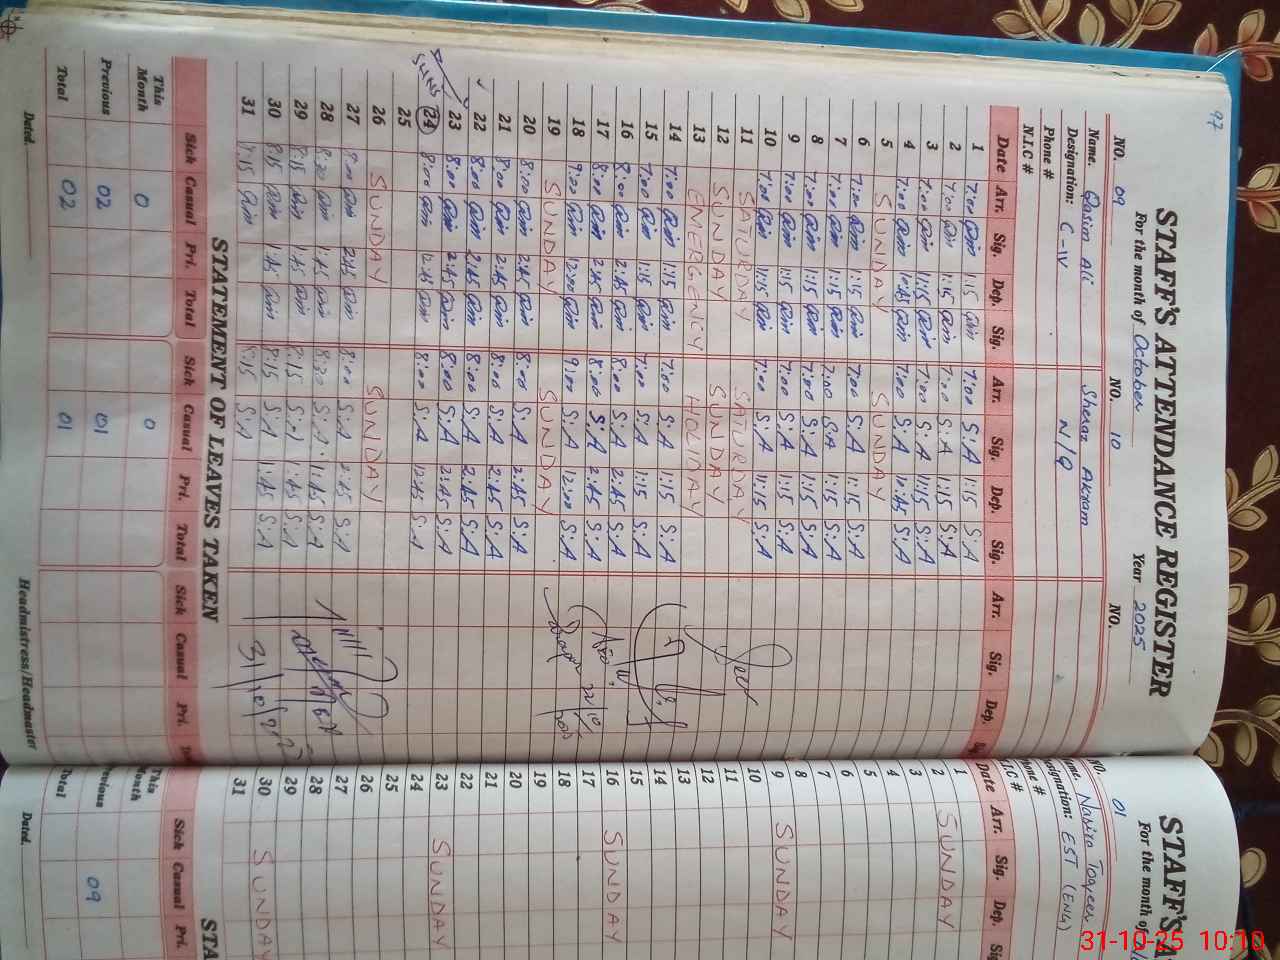 97
STAFF'S ATTENDANCE REGISTER
For the month of October Year 2025
NO. 09 NO. 10 NO.
Name. Qasim Ali Sheraz Akram
Designation: C-IV N/Q
Phone #
N.I.C #
Date Arr. Sig. Dep. Sig. Arr. Sig. Dep. Sig. Arr. Sig. Dep.
1 7:00 1:15 7:00 S:A 1:15 S:A
2 7:00 1:15 7:00 S:A 1:15 S:A
3 7:00 11:15 7:00 S:A 11:15 S:A
4 7:00 10:45 7:00 S:A 10:45 S:A
5 SUNDAY SUNDAY
6 7:00 1:15 7:00 S:A 1:15 S:A
7 7:00 1:15 7:00 S:A 1:15 S:A
8 7:00 1:15 7:00 S:A 1:15 S:A
9 7:00 1:15 7:00 S:A 1:15 S:A
10 7:00 11:15 7:00 S:A 11:15 S:A
11 SATURDAY SATURDAY
12 SUNDAY SUNDAY
13 EMERGENCY HOLIDAY
14 7:00 1:15 7:00 S:A 1:15 S:A
15 7:00 1:15 7:00 S:A 1:15 S:A
16 8:00 2:45 8:00 S:A 2:45 S:A
17 8:00 2:45 8:00 S:A 2:45 S:A
18 9:00 12:00 9:00 S:A 12:00 S:A
19 SUNDAY SUNDAY
20 8:00 2:45 8:00 S:A 2:45 S:A
21 8:00 2:45 8:00 S:A 2:45 S:A
22 8:00 2:45 8:00 S:A 2:45 S:A
23 8:00 2:45 8:00 S:A 2:45 S:A
24 8:00 12:45 8:00 S:A 12:45 S:A
25
26 SUNDAY SUNDAY
27 8:00 2:45 8:00 S:A 2:45 S:A
28 8:30 1:45 8:30 S:A 1:45 S:A
29 8:15 1:45 8:15 S:A 1:45 S:A
30 8:15 1:45 8:15 S:A 1:45 S:A
31 8:15 8:15 S:A
STATEMENT OF LEAVES TAKEN
Sick Casual Pri. Total Sick Casual Pri. Total Sick Casual Pri.
This Month 0 0
Previous 02 01
Total 02 01
Dated. Headmistress/Headmaster
STAFF'S
For the month of
NO. 01
Designation: EST (ENG)
Date Arr. Sig. Dep.
1
2 SUNDAY
3
4
5
6
7
8
9 SUNDAY
10
11
12
13
14
15
16 SUNDAY
17
18
19
20
21
22
23 SUNDAY
24
25
26
27
28
29
30 SUNDAY
31
STA
Sick Casual Pri.
This Month
Previous 09
Total
Dated.
31-10-25 10:10